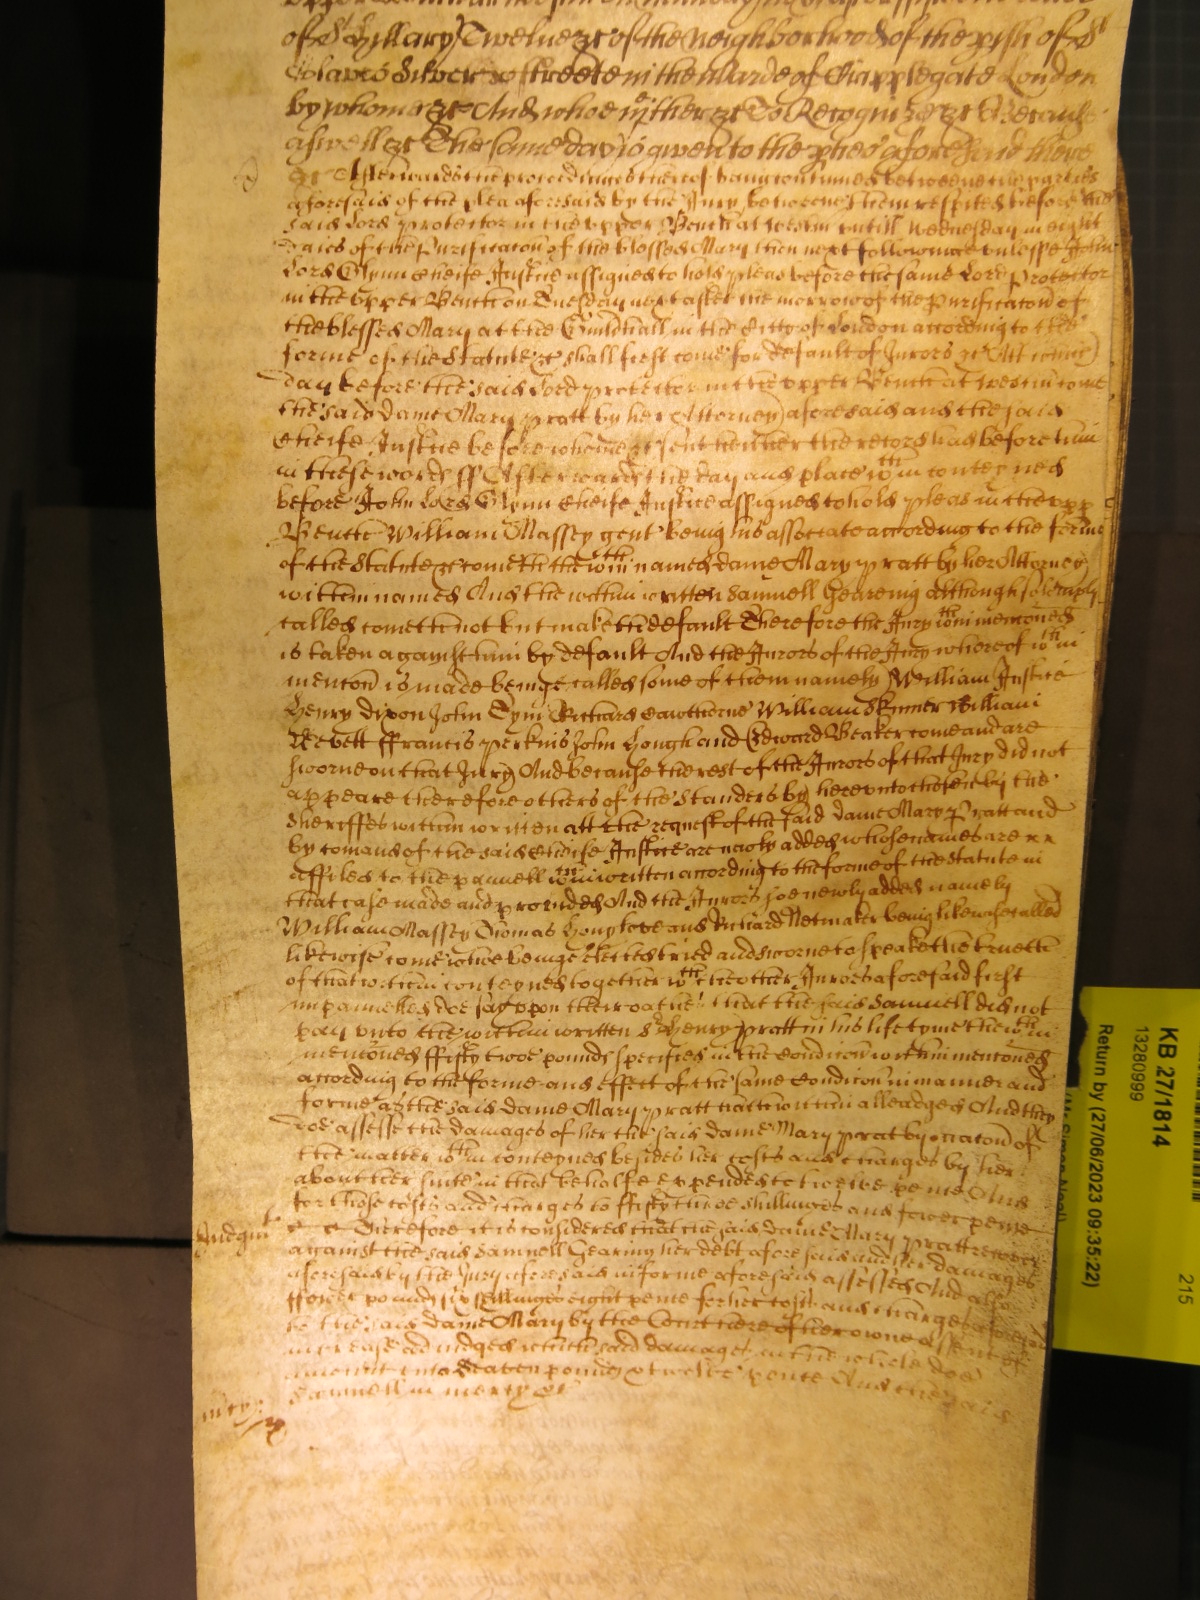 of St Hillary Twelve &c of the neighborhood of the pish of St
Olaves Silver streete in the Warde of Criplegate London
by whome &c And whoe neither &c To Recognize &c Because
aswell &c The same day is given to the pties aforesaid there
&c Afterwards the proceedinges thereof being continued betweene the parties
aforesaid of the plea aforesaid by the Jury betweene them respited before the
said Lord Protector in the upper Bench at Westm untill Wednesday in eight
daies of the Purificacon of the blessed Mary then next followinge unlesse John
Lord Glynn Cheife Justice assigned to hold pleas before the same Lord Protector
in the upper Bench on Tuesday next after the morrow of the Purificacon of
the blessed Mary at the Guildhall in the Citty of London according to the
forme of the Statute &c shall first come for default of Jurors &c Att which
day before the said Lord Protector in the upper Bench at Westm come
the said dame Mary Pratt by her Attorney aforesaid and the said
Cheife Justice before whome &c sent hither the record had before him
in these words ss Afterwards the day and place wthin conteyned
before John Lord Glynn Cheife Justice assigned to hold pleas in the upp
Bench William Massey gent being his associate according to the forme
of the Statute &c cometh the wthin named dame Mary Pratt by her Attorney
within named And the within written Samuell Gearing although solemply
called cometh not but maketh default Therefore the Jury wthin menconed
is taken against him by default And the Jurors of the Jury whereof wthin
mencon is made beinge called some of them namely William Justice
Henry Dixon John Tym Richard Cawthorne William Skinner William
Revett ffrancis Perkins John Hough and Edward Beaker come and are
sworne on that Jury And because the rest of the Jurors of that Jury did not
appeare therefore others of the standers by hereunto chosen by the
Sheriffes within written att the request of the said dame Mary Pratt and
by comand of the said Cheife Justice are newly added whose names are
affiled to the pannell wthin written according to the forme of the Statute in
that case made and provided And the Jurors soe newly added namely
William Massey Thomas Honylove and Richard Netmaker being likewise called
likewise come whoe beinge elected tried and sworne to speake the trueth
of that within conteyned together wth the other Jurors aforesaid first
impannelled doe say upon their oathes that the said Samuell did not
pay unto the within written Sr Henry Pratt in his life tyme the wthin
menconed ffifty twoe pounds specified in the Condicon within menconed
according to the forme and effect of the same Condicon in manner and
forme as the said dame Mary Pratt hath within alleadged And they
doe assesse the damages of her the said dame Mary Pratt by occacon of
the matter wthin conteyned besides her costs and charges by her
about her suite in that behalfe expended to twelve pence And
for those costs and charges to ffifty three shillinges and fower pence
Judgmt Therefore it is considered that the said dame Mary Pratt recover
against the said Samuell Gearing her debt aforesaid and her damages
aforesaid by the Jury aforesaid in forme aforesaid assessed And also
ffower pounds six shillinges eight pence for her costs and charges aforesaid
to the said dame Mary by the Court here of her owne assent of
increase adjudged which said damages in the whole doe
amount unto Seaven pounds & twelve pence And the said
mcy: Samuell in mercy &c
KB 27/1814
13280999
Return by (27/06/2023 09:35:22)
215